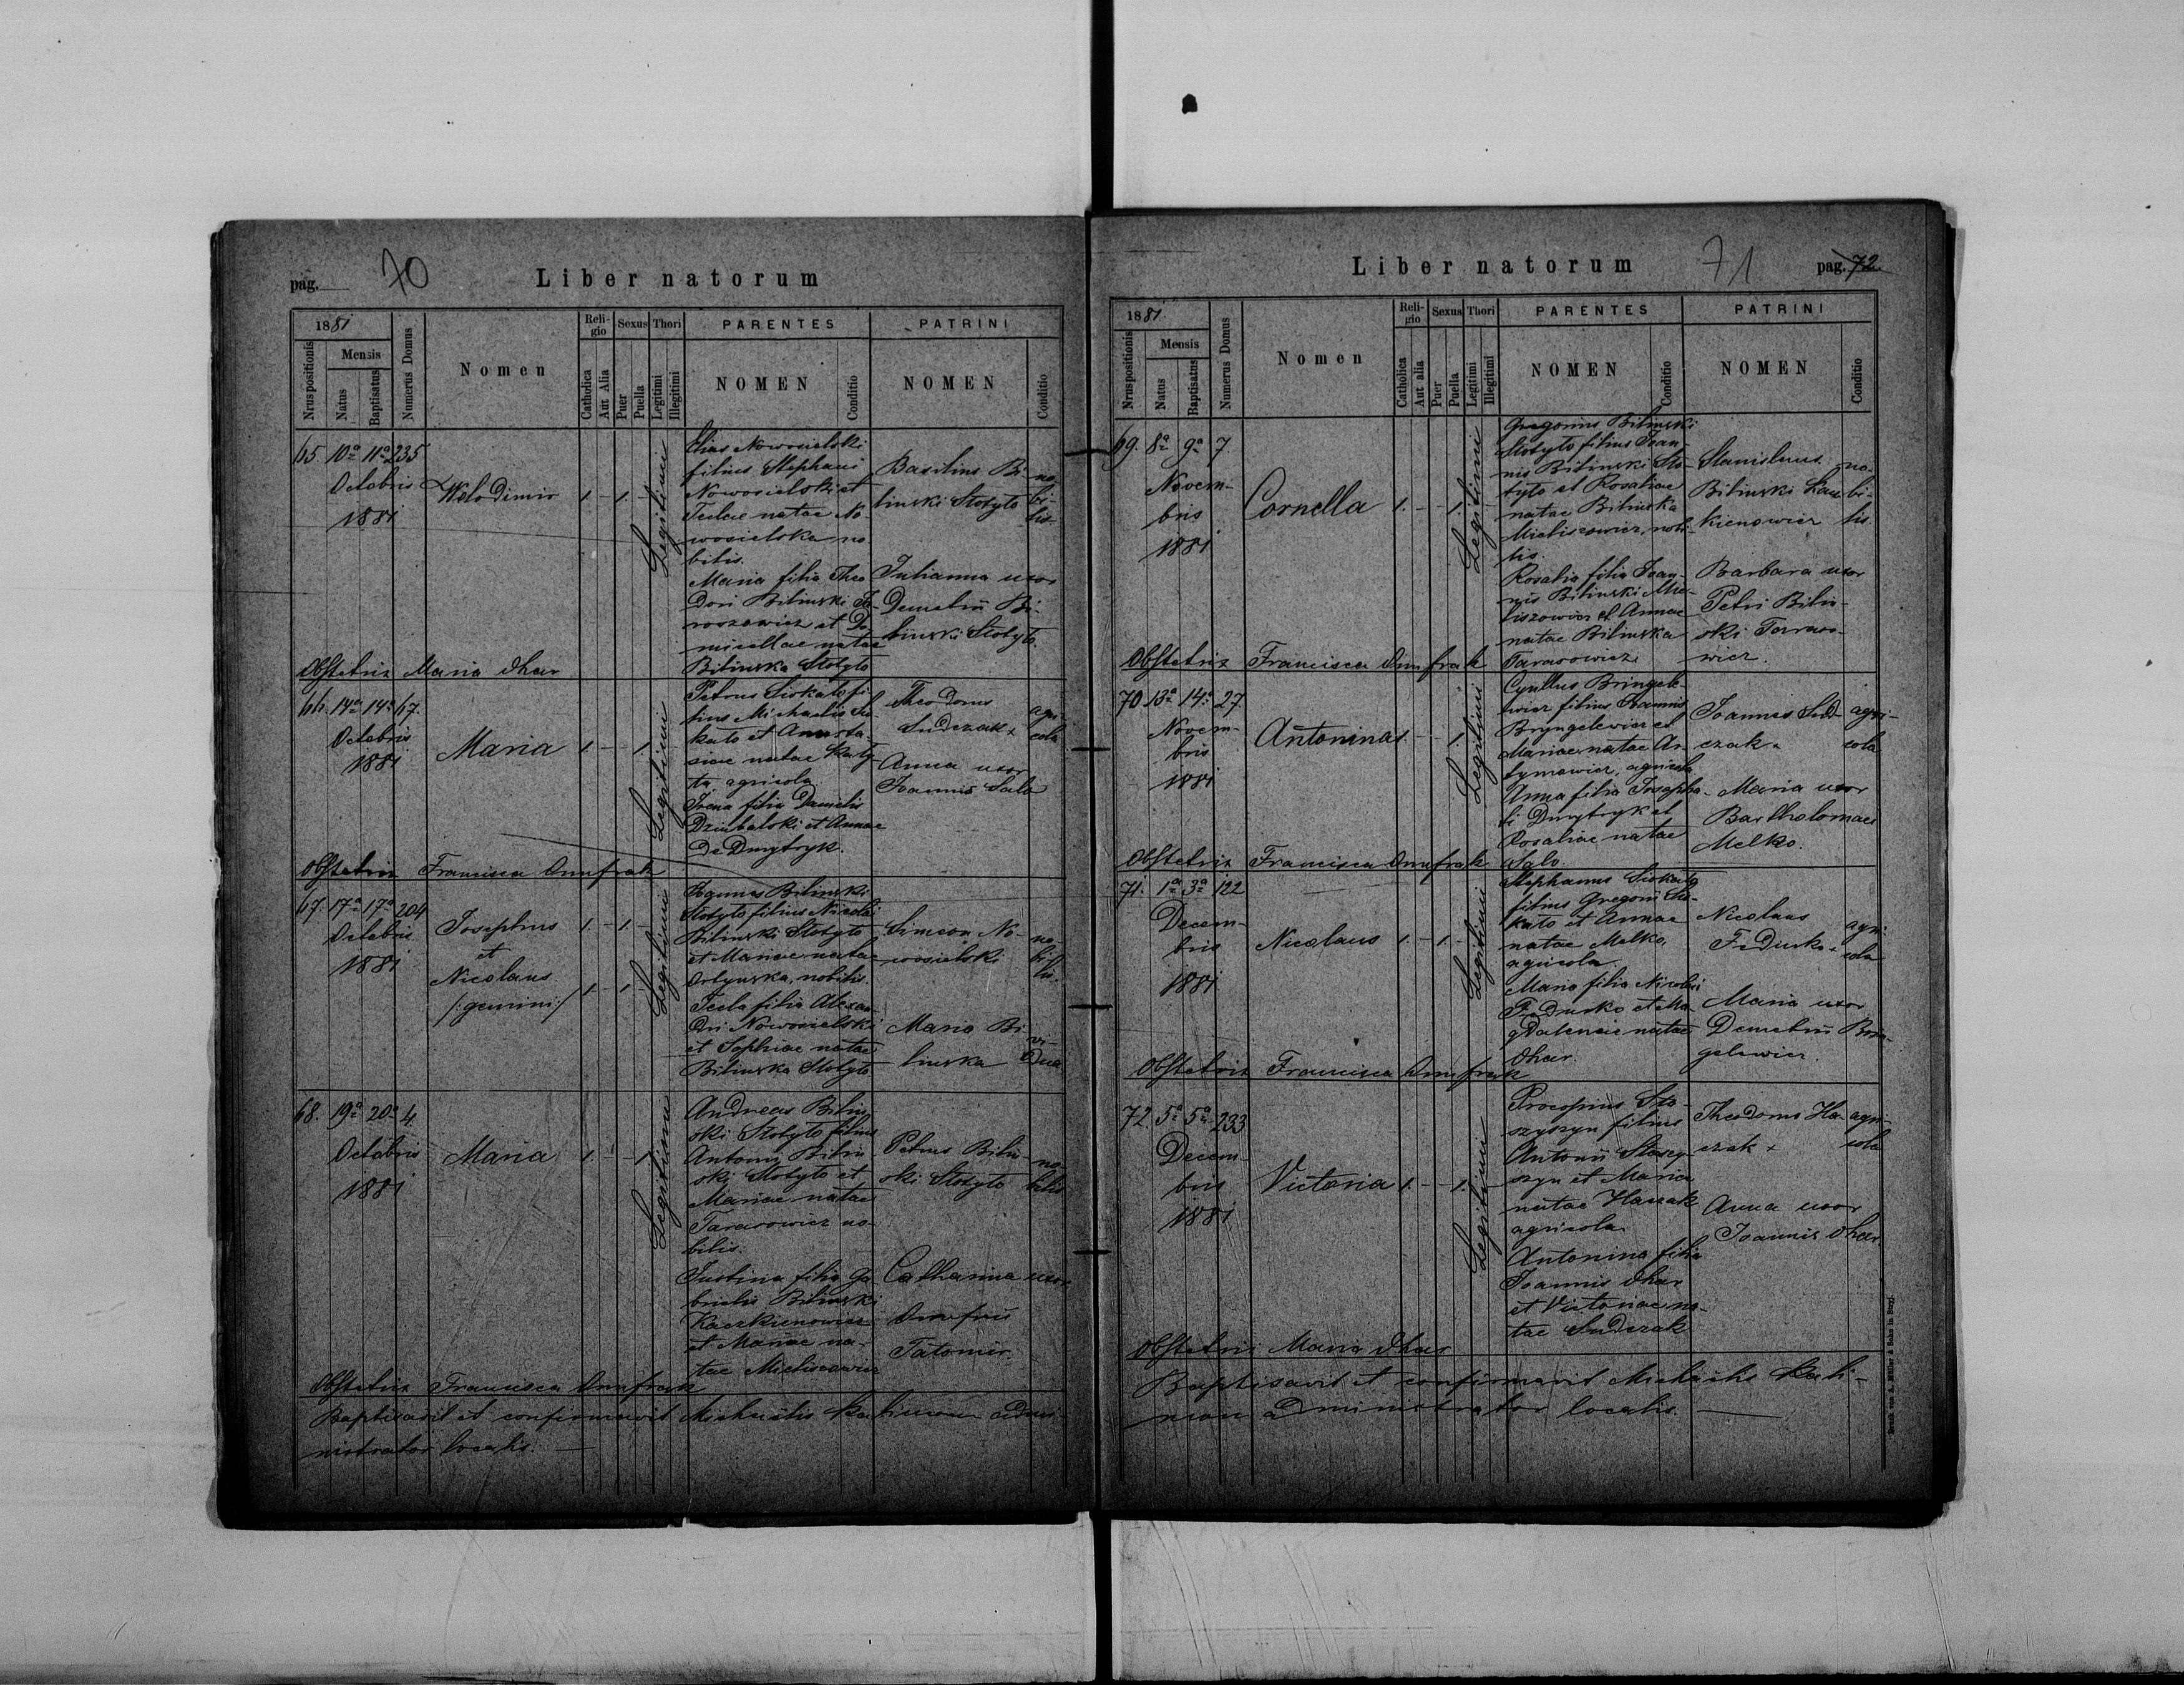 pag. 70
Liber natorum
1881
Nrus positionis
Mensis
Natus
Baptisatus
Numerus Domus
Nomen
Religio
Catholica
Aut Alia
Sexus
Puer
Puella
Thori
Legitimi
Illegitimi
PARENTES
NOMEN
Conditio
PATRINI
NOMEN
Conditio
65. 10a 11a 235
Octobris
1881
Wolodimir
1. - 1. -
Legitimi
Elias Nowosielski
filius Stephani
Nowosielski et
Teclae natae No-
wosielska no
bilis.
Maria filia Theo
dori Bilinski
et Do
micellae natae
Bilinska Stotyto
Basilius Bi-
linski Stotyto
no-
bi-
lis
Julianna uxor
Demetrii Bi-
linski Stotyto.
Obstetrix Maria Ohar
66. 14a 14a 67.
Octobris
1881
Maria
1. - 1.
Legitimi
Petrus Siokalo fi-
lius Michaelis Sio-
kalo et Anasta-
siae natae
agricola
Irena filia Danielis
Dziubalski et Annae
De Dmytryk.
Theodorus
Sudczak +
agri-
cola
Anna uxor
Joannis Salo
Obstetrix Francisca Onufrak
67. 17a 17a 204
Octobris
1881
Josephus
et
Nicolaus
/:gemini:/
1. - 1. -
1. - 1.
Legitimi
Joannes Bilinski
Stotyto filius Nicolai
Bilinski Stotyto
et Mariae natae
Ortynska, nobilis.
Tecla filia Alexan
dri Nowosielski
et Sophiae natae
Bilinska Stotyto
Simeon No-
wosielski
no-
bi-
lis.
Maria Bi
linska
vi-
dua
68. 19a 20a 4.
Octobris
1881
Maria
1. - 1.
Legitimi
Andreas Bilin
ski Stotyto filius
Antonii Bilin
ski Stotyto et
Mariae natae
Tarasowicz no-
bilis.
Justina filia Ga
brielis Bilinski
Kaczkienowicz
et Mariae na-
tae Mieliszowicz
Petrus Bilin-
ski Stotyto
no-
bilis
Catharina uxor
Onufrii
Tatomir.
Obstetrix Francisca Onufrak
Baptisavit et confirmavit Michaelis admi-
nistrator localis. -
Liber natorum
71
pag. 72.
1881
Nrus positionis
Mensis
Natus
Baptisatus
Numerus Domus
Nomen
Religio
Catholica
Aut alia
Sexus
Puer
Puella
Thori
Legitimi
Illegitimi
PARENTES
NOMEN
Conditio
PATRINI
NOMEN
Conditio
69. 8a 9a 7
Novem-
bris
1881
Cornella
1. - 1. -
Legitimi
Gregorius Bilinski
Stotyto filius Joan-
nis Bilinski Sto-
tyto et Rosaliae
natae Bilinska
Mieliszowicz, nobi-
lis.
Rosalia filia Joan-
nis Bilinski Mie-
liszowicz et Annae
natae Bilinska
Tarasowicz
Stanislaus
Bilinski
kienowicz
no-
bi-
lis.
Barbara uxor
Petri Bilin-
ski Taraso-
wicz.
Obstetrix Francisca Onufrak
70. 13a 14a 27.
Novem-
bris
1881
Antonina
1. - 1.
Legitimi
Cyrillus Bringele-
wicz filius Joannis
Bryngelewicz et
Mariae natae Ar-
tymowicz, agricola
Anna filia Josepha-
ti Dmytryk et
Rosaliae natae
Salo.
Joannes Sud-
czak +
agri-
cola
Maria uxor
Bartholomaei
Melko.
Obstetrix Francisca Onufrak
71. 1a 3a 122
Decem-
bris
1881
Nicolaus
1. - 1. -
Legitimi
Stephanus Siokalo
filius Gregorii Sio-
kalo et Annae
natae Melko,
agricola.
Maria filia Nicolai
Fedusko et Ma
gdalenae natae
Ohar.
Nicolaus
Fedusko +
agri-
cola
Maria uxor
Demetrii Brin-
gelewicz.
Obstetrix Francisca Onufrak
72. 5a 5a 233
Decem-
bris
1881
Victoria
1. - 1.
Legitimi
Procopius Sta-
szyszyn filius
Antonii Staszy-
szyn et Maria
natae Haczak
agricola
Antonina filia
Joannis Ohar
et Victoriae na-
tae Sudczak
Theodorus Ha-
czak +
agri-
cola
Anna uxor
Joannis Ohar.
Obstetrix Maria Ohar
Baptisavit et confirmavit Michaelis
administrator localis. -